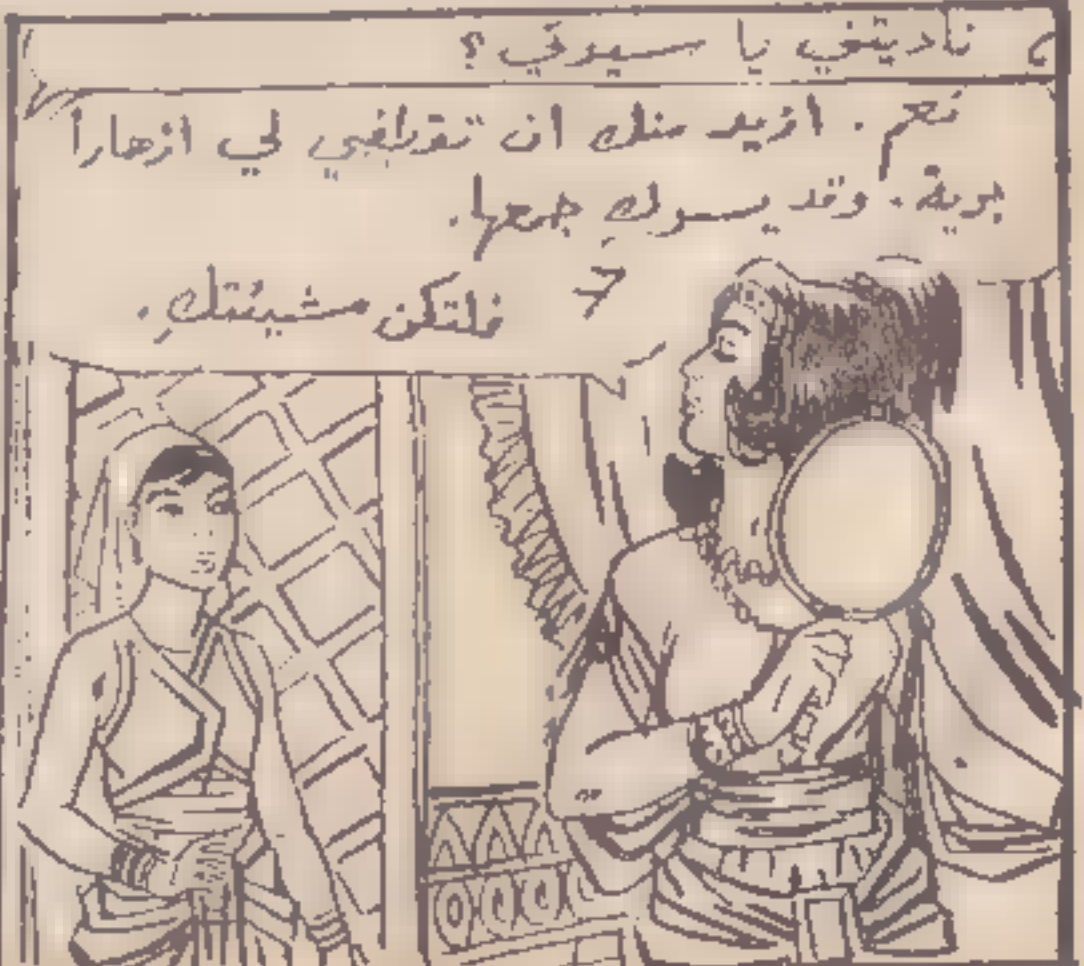 ناديتني يا سيدتي ؟
نعم . اريد منك ان تقطفي لي ازهارا
برية . وقد يسرك جمعها .
فلتكن مشيئتك .